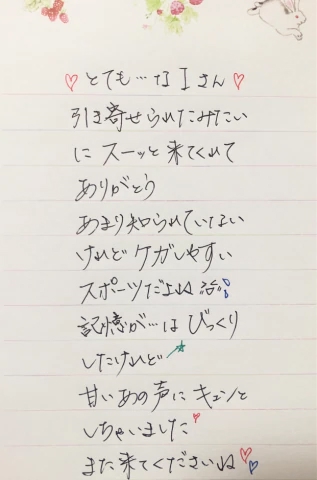 ♡とても…な Iさん♡
引き寄せられたみたい
に スーッと 来てくれて
ありがとう
あまり知られていない
けれど ケガしやすい
スポーツだよね
記憶が…は びっくり
したけれど☆
甘いあの声に キュンと
しちゃいました♡
また来てくださいね♡♡